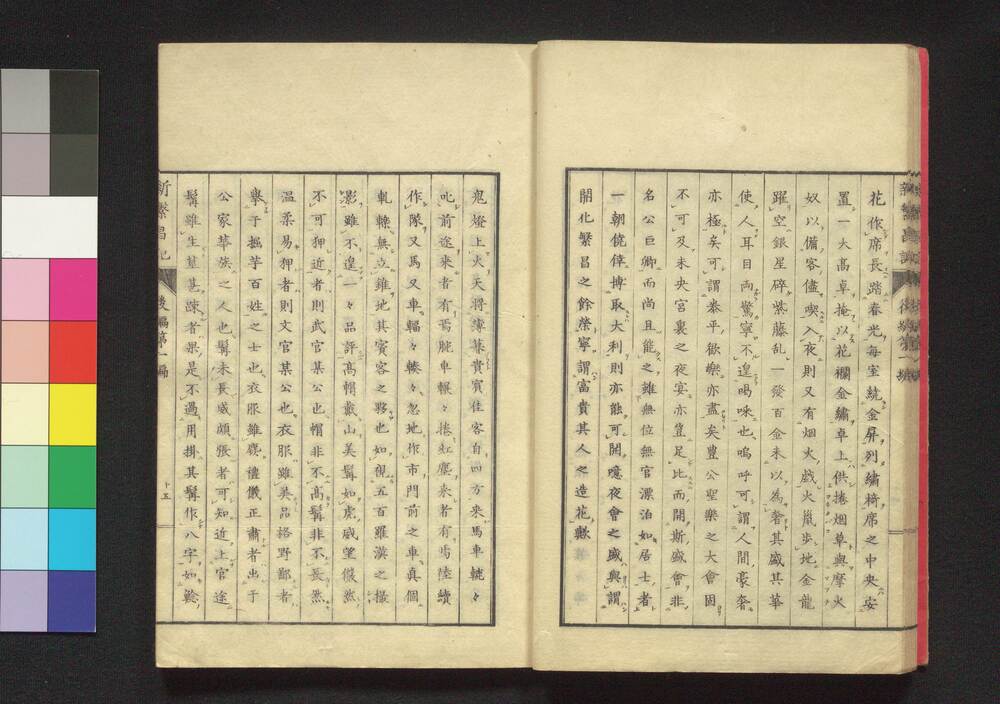 花作席長踏春光毎室統金屏列繡椅席之中央安
置一大高卓掩以花襴金繡卓上供捲烟草與摩火
奴以備客儘喫入夜則又有烟火戲火嵐歩地金龍
躍空銀星碎紫藤乱一發百金未以為奢其盛其華
使人耳目両驚寧不遑喝咏也嗚呼可謂人間豪奢
亦極矣可謂泰平歡樂亦盡矣豊公聖樂之大會固
不可及未央宮裏之夜宴亦豈足比而開斯盛會非
名公巨卿而尚且能之雖無位無官漂泊如居士者
一朝僥倖博取大利則亦能可開噫夜會之盛與謂
開化繁昌之餘榮寧謂富貴其人之造花歟
鬼燈上火天将薄暮貴賓佳客自四方来馬車轆々
叱前途来者有焉腕車輾々捲紅塵来者有焉陸續
作隊又馬又車輻々輳々忽地作市門前之車真個
軋轢無立錐地其賓客之夥也如観五百羅漢之撮
影雖不遑一々品評高帽戴山美髯如虎威望儼然
不可狎近者則武官某公也帽非不高髯非不長然
温柔易狎者則文官某公也衣服雖美品格野鄙者
擧于掘芋百姓之士也衣服雖麁禮儀正肅者出于
公家華族之人也髯未長威頗張者可知近上官途
髯雖生甚疎者果是不過用掛其髯作八字如鯰
新繁昌記
後編第一編
十五